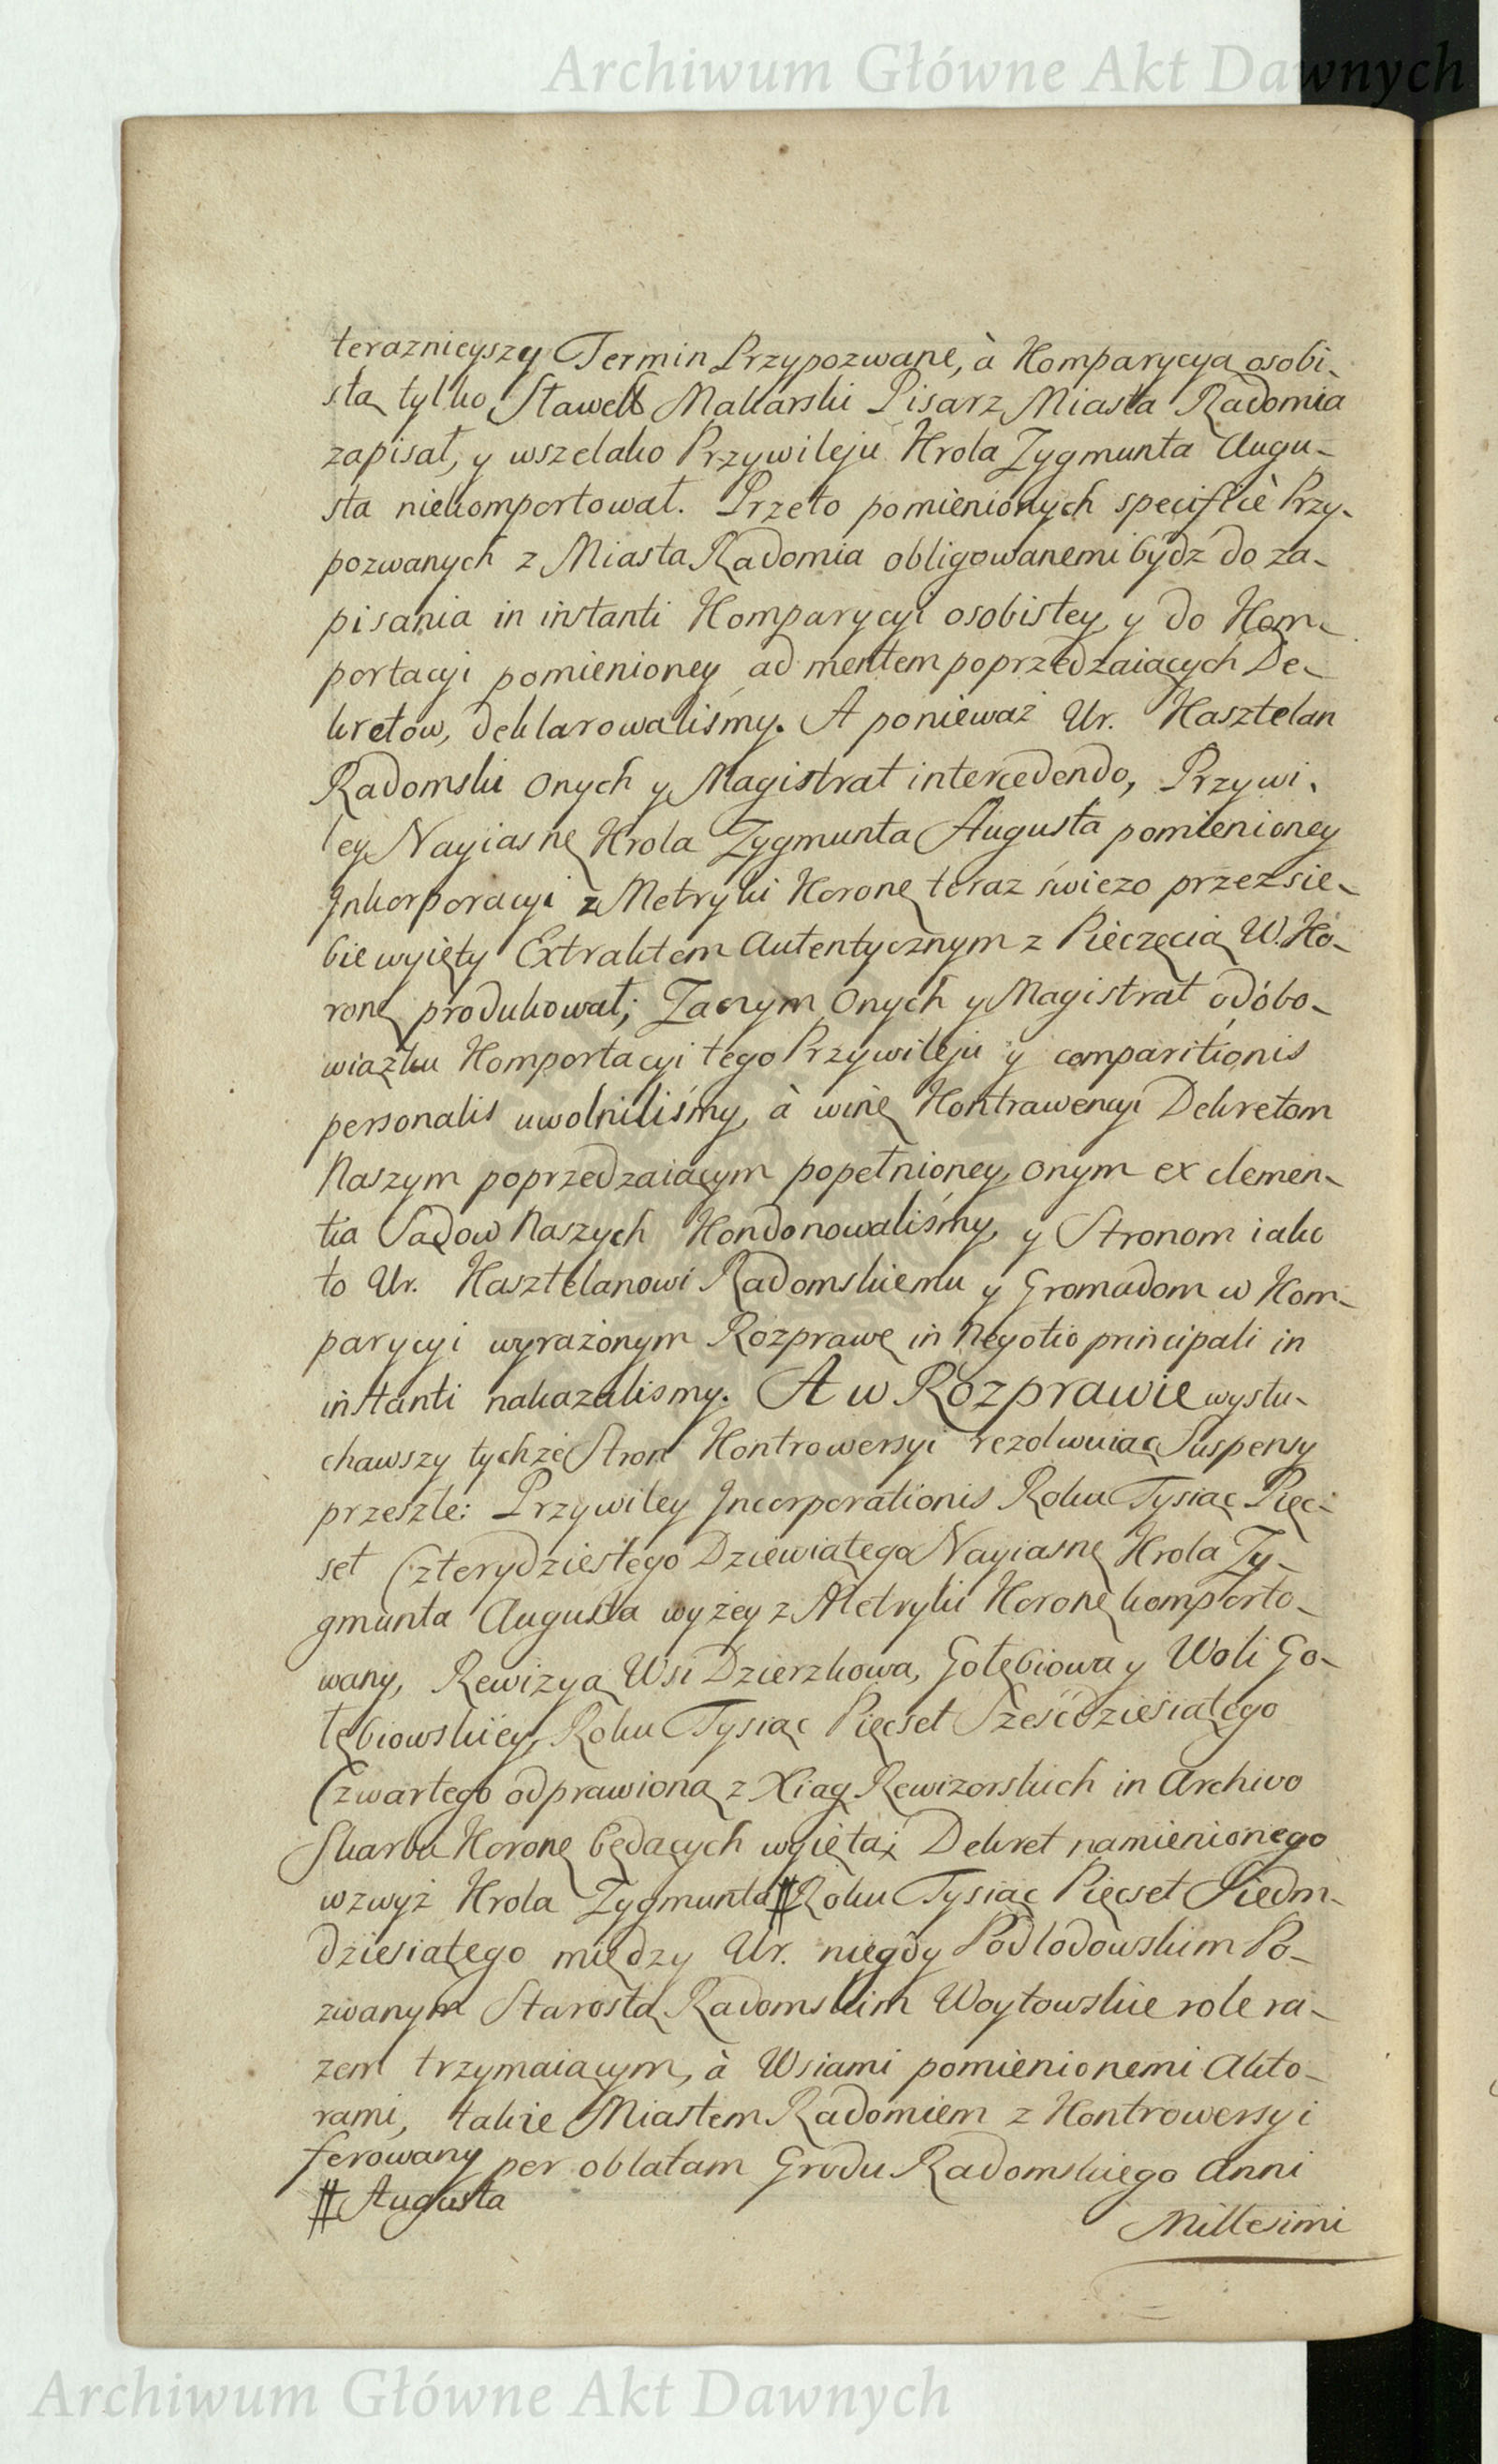 Archiwum Główne Akt Dawnych
teraznieyszy Termin Przypozwane, à Komparycyą osobi-
stą tylko Sławet Makarski Pisarz Miasta Radomia
zapisał, y wszelako Przywileju Krola Zygmunta Augu-
sta niekomportował. Przeto pomienionych specificè Przy-
pozwanych z Miasta Radomia obligowanemi bydź do za-
pisania in instanti Komparycyi osobistey, y do Kom-
portacyi pomienioney ad mentem poprzedzaiących De-
kretow, deklarowaliśmy. A ponieważ Ur. Kasztelan
Radomski onych y Magistrat intercedendo, Przywi-
ley Nayiasne Krola Zygmunta Augusta pomienioney
Inkorporacyi z Metryki Korone teraz świezo przez sie-
bie wyięty Extraktem Autentycznym z Pieczęcią W. Ko-
rone produkował; Zaczym onych y Magistrat od óbo-
wiązku Komportacyi tego Przywileju y comparitionis
personalis uwolniliśmy, à winę Kontrawencyi Dekretom
Naszym poprzedzaiącym popełnioney, onym ex clemen-
tia Sądow Naszych Kondonowaliśmy, y Stronom iako
to Ur. Kasztelanowi Radomskiemu y Gromadom w Kom-
parycyi wyrażonym Rozprawę in Negotio principali in
instanti nakazalismy. A w Rozprawie wysłu-
chawszy tychże Stron Kontrowersyi rezolwuiąc Suspensy
przeszłe: Przywiley Incorporationis Roku Tysiąc Pięc-
set Czterydziestego Dziewiątego Nayiasne Krola Zy-
gmunta Augusta wyżey z Metryki Korone komporto-
wany, Rewizyą Wsi Dzierzkowa, Gołębiowa y Woli Go-
łębiowskiey, Roku Tysiąc Pięcset Sześćdziesiątego
Czwartego odprawioną z Xiąg Rewizorskich in Archivo
Skarbu Korone będących wyiętą; Dekret namienionego
wzwyż Krola Zygmunta # Roku Tysiąc Pięcset Siedm-
dziesiątego między Ur. niegdy Podlodowskim Po-
zwanym Starostą Radomskim Woytowskie role ra-
zem trzymaiącym, à Wsiami pomienionemi Akto-
rami, także Miastem Radomiem z Kontrowersyi
ferowany per oblatam Grodu Radomskiego Anni
# Augusta
Millesimi
Archiwum Główne Akt Dawnych